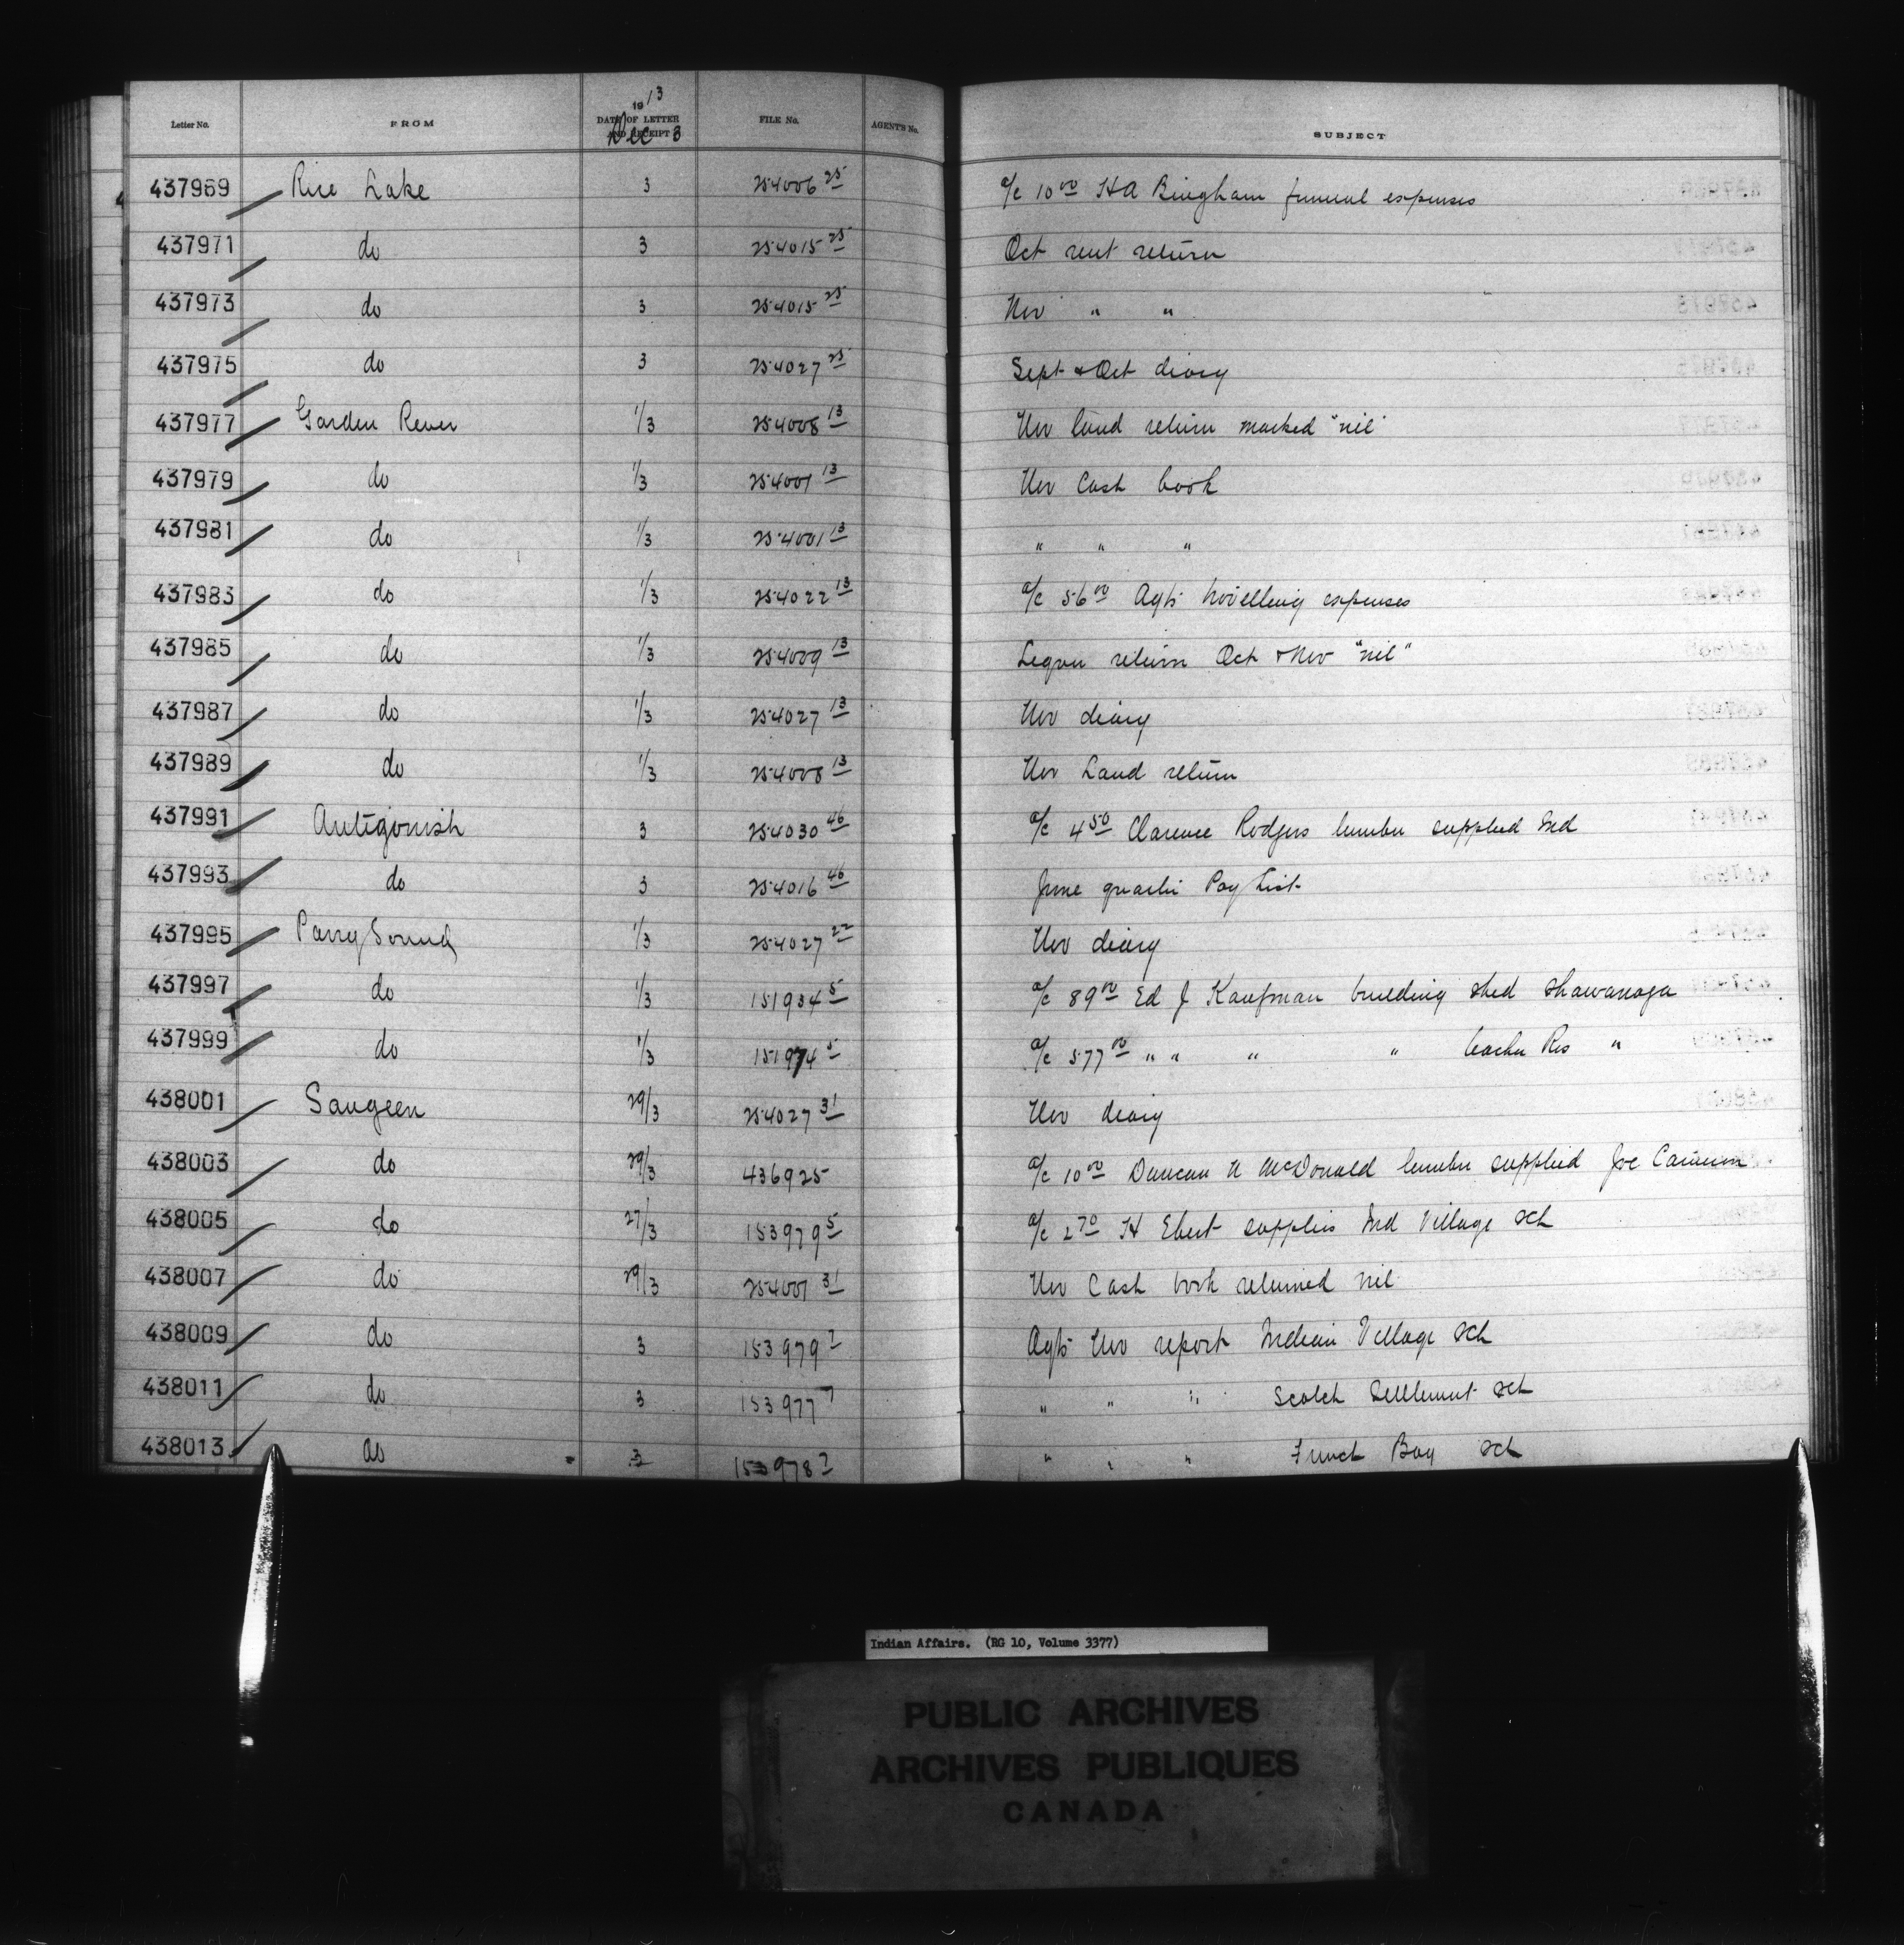 Letter No. FROM 1913 DATE OF LETTER AND RECEIPT Dec 3 FILE No. AGENT'S No. SUBJECT
437969 Rice Lake 3 254006 25 a/c 10 00 H A Bingham funeral expenses
437971 do 3 254015 25 Oct rent return
437973 do 3 254015 25 Nov " "
437975 do 3 254027 25 Sept & Oct diary
437977 Garden River 1/3 254008 13 Nov land return marked "nil"
437979 do 1/3 254001 13 Nov Cash book
437981 do 1/3 254001 13 " " "
437983 do 1/3 254022 13 a/c 56 00 Agts travelling expenses
437985 do 1/3 254009 13 Liquor return Oct & Nov "nil"
437987 do 1/3 254027 13 Nov diary
437989 do 1/3 254008 13 Nov Land return
437991 Antigonish 3 254030 46 a/c 4 50 Clarence Rodgers lumber supplied Ind
437993 do 3 254016 46 June quarter Pay List
437995 Parry Sound 1/3 254027 22 Nov diary
437997 do 1/3 151934 5 a/c 89 00 Ed J Kaufman building shed Shawanaga
437999 do 1/3 151974 5 a/c 577 00 " " " " teacher Res "
438001 Saugeen 29/3 254027 31 Nov diary
438003 do 29/3 436925 a/c 10 00 Duncan N McDonald lumber supplied Joe Cameron
438005 do 27/3 153979 5 a/c 2 70 H Ebert supplies Ind Village sch
438007 do 29/3 254001 31 Nov Cash book returned nil
438009 do 3 153979 7 Agts Nov report Indian Village sch
438011 do 3 153977 7 " " " Scotch Settlement sch
438013 do 3 153978 7 " " " French Bay sch
Indian Affairs. (RG 10, Volume 3377)
PUBLIC ARCHIVES
ARCHIVES PUBLIQUES
CANADA